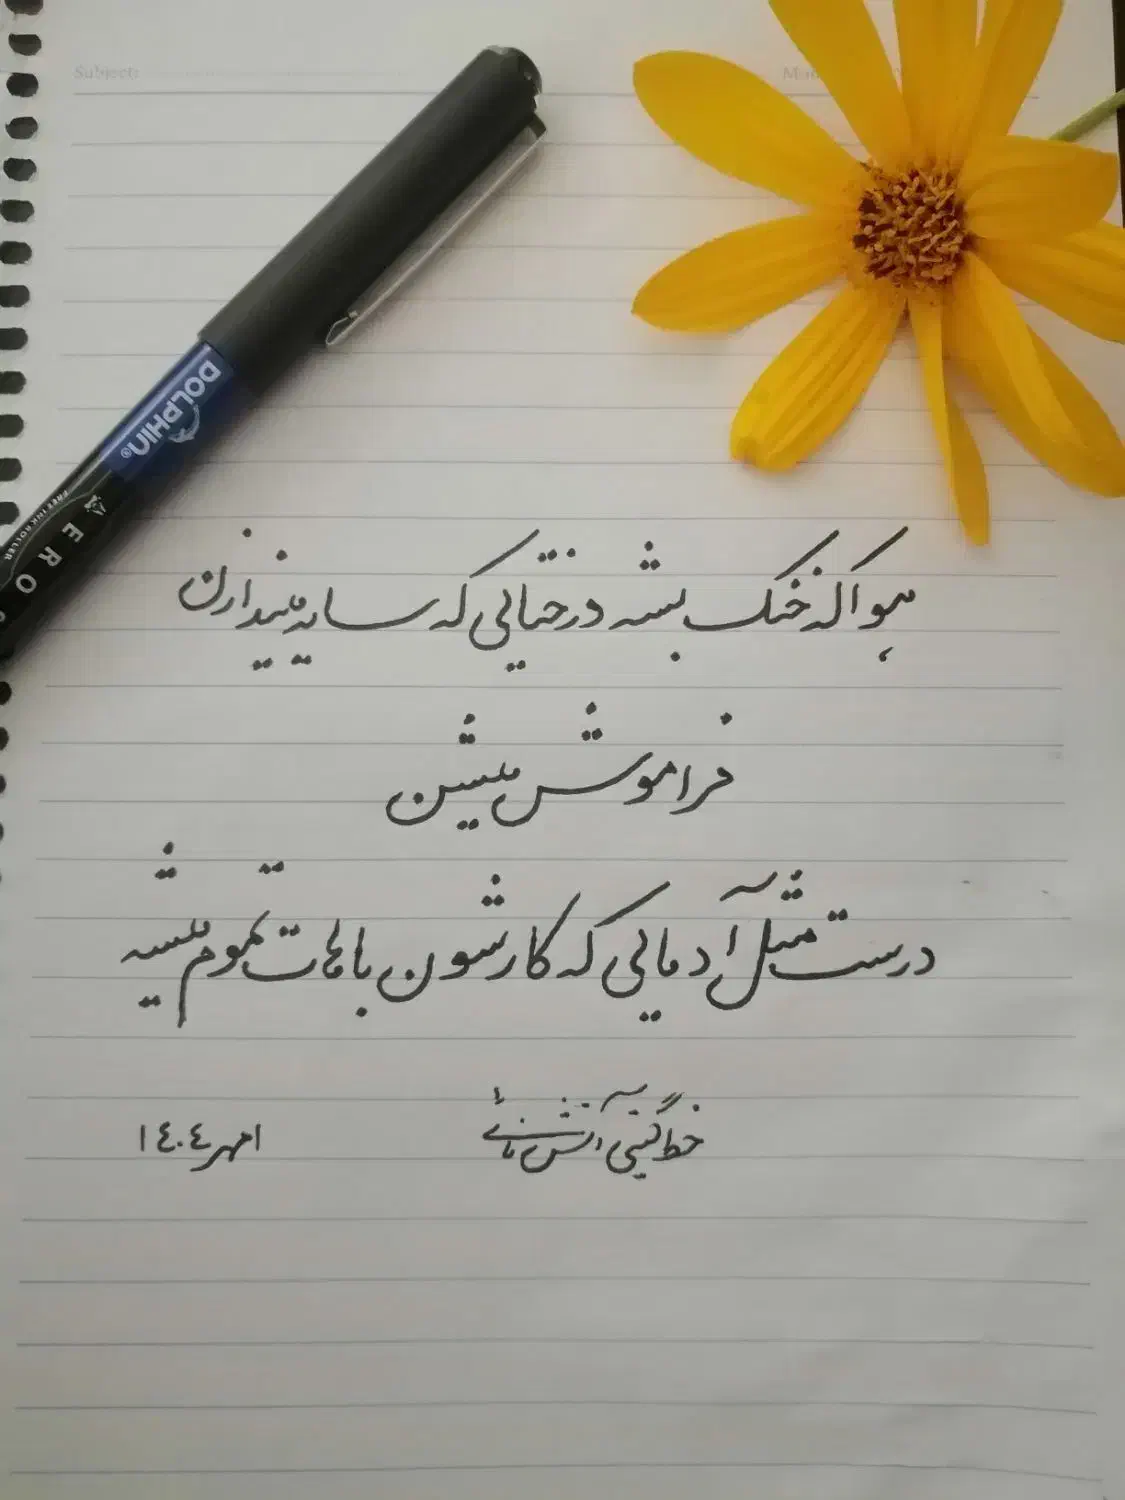 Subject:
DOLPHIN®
FREE INK ROLLER
AERO
هوا که خنک بشه درختایی که سایه میندازن
فراموش میشن
درست مثل آدمایی که کارشون باهات تموم میشه
خط گیتی آتش
۱مهر۱۴۰۴